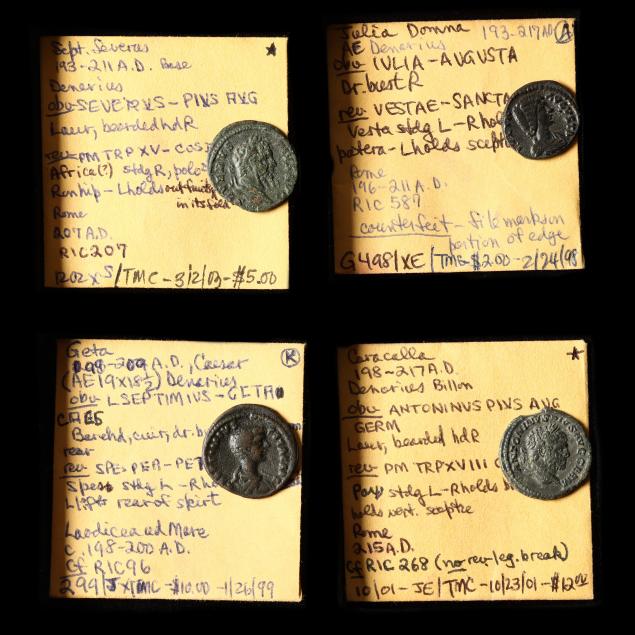 Sept. Severus
193-211 A.D. Base
Denarius
obv SEVERVS-PIVS AVG
Laur, bearded hd R
rev PM TRP XV-COS
Africa(?) stdg R,
R on hip-L holds out fruits
in its fold
Rome
207 A.D.
RIC 207
/TMC-3/2/03-$5.00
Julia Domna 193-217 AD A
AE Denarius
obv IVLIA-AUGUSTA
Dr. bust R
rev VESTAE-SANCTA
Vesta stdg L-R hol
patera-L holds scept
Rome
196-211 A.D.
RIC 587
counterfeit-file marks on
portion of edge
G498/XE/TMC-$2.00-2/24/98
Geta K
198-209 A.D., Caesar
(AE19x18½) Denarius
obv L SEPTIMIVS-GETA
CAES
Barehd, cuir, dr. b
rear
rev SPEI PER-PET
Spes stdg L-Rho
L lifts rear of skirt
Laodicea ad Mare
c. 198-200 A.D.
Cf RIC 96
TMC-$10.00-1/26/99
Caracalla
198-217 A.D.
Denarius Billon
obv ANTONINVS PIVS AVG
GERM
Laur, bearded hd R
rev PM TRP XVIII C
stdg L-R holds
holds vert. scepter
Rome
215 A.D.
Cf RIC 268 (no rev. leg. break)
10/01-JE/TMC-10/23/01-$12.00